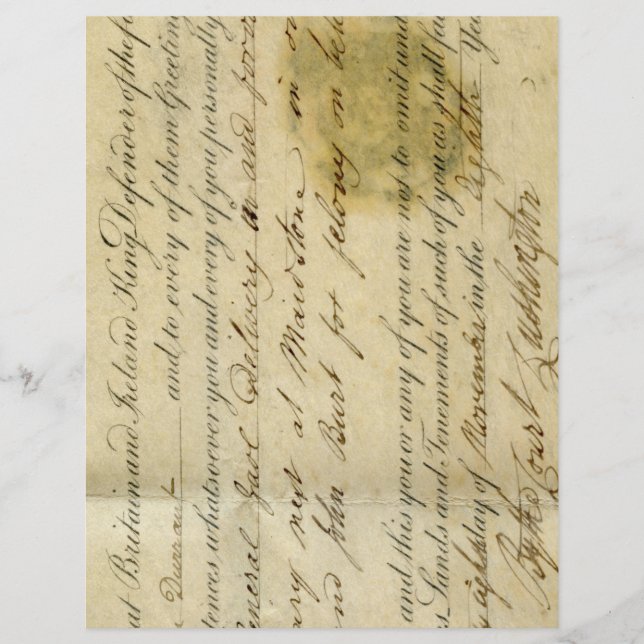 at Britain and Ireland King, Defender of the f
and to every of them Greeting
tences whatsoever you and every of you personally
eneral Gaol Delivery and
ary next at Maidstone in o
nd John Burt for felony on beh
and this you or any of you are not to omit und
es_Lands and Tenements of such of you as shall fai
eighth day of November in the eighth Ye
By the Court Lushington